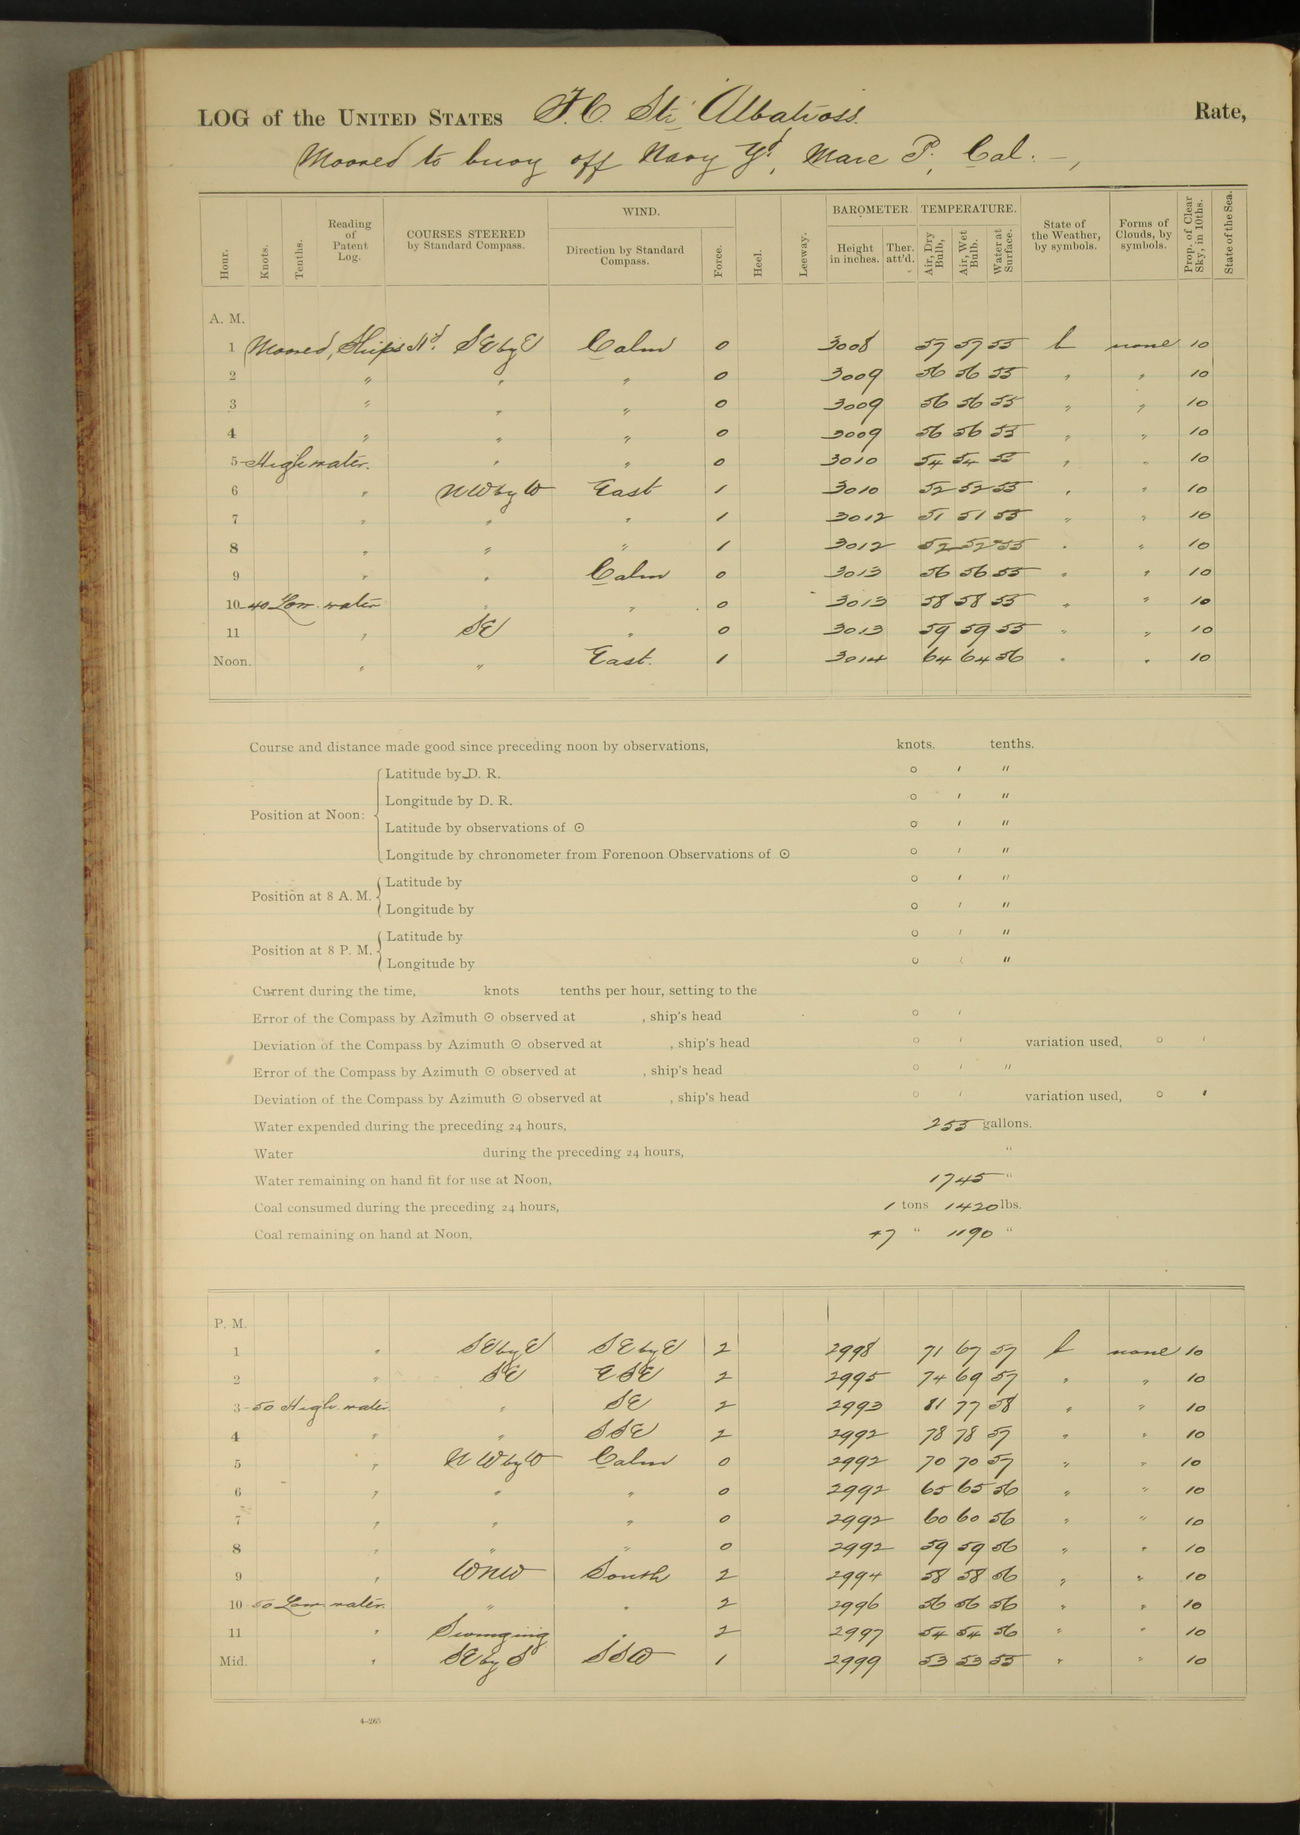 LOG of the UNITED STATES F.C. Str. Albatross. Rate,
Moored to buoy off Navy Yd, Mare I., Cal. —,
Hour. Knots. Tenths. Reading of Patent Log. COURSES STEERED by Standard Compass. WIND. Direction by Standard Compass. Force. Heel. Leeway. BAROMETER. Height in inches. Ther. att'd. TEMPERATURE. Air, Dry Bulb, Air, Wet Bulb. Water at Surface. State of the Weather, by symbols. Forms of Clouds, by symbols. Prop. of Clear Sky, in 10ths. State of the Sea.
A. M.
1 Moored, Ships Hd. SE by E Calm 0 3008 57 57 55 b none 10
2 " " " 0 3009 56 56 55 " " 10
3 " " " 0 3009 56 56 55 " " 10
4 " " " 0 3009 56 56 55 " " 10
5 High water. " " 0 3010 54 54 55 " " 10
6 " NW by W East 1 3010 52 52 55 " " 10
7 " " " 1 3012 51 51 55 " " 10
8 " " " 1 3012 52 52 55 " " 10
9 " " Calm 0 3013 56 56 55 " " 10
10 40 Low water " " 0 3013 58 58 55 " " 10
11 " SE " 0 3013 59 59 55 " " 10
Noon. " " East. 1 3014 64 64 56 " " 10
Course and distance made good since preceding noon by observations, knots. tenths.
Position at Noon: Latitude by D. R. ° ' "
Longitude by D. R. ° ' "
Latitude by observations of ☉ ° ' "
Longitude by chronometer from Forenoon Observations of ☉ ° ' "
Position at 8 A. M. Latitude by ° ' "
Longitude by ° ' "
Position at 8 P. M. Latitude by ° ' "
Longitude by ° ' "
Current during the time, knots tenths per hour, setting to the
Error of the Compass by Azimuth ☉ observed at , ship's head ° '
Deviation of the Compass by Azimuth ☉ observed at , ship's head ° ' variation used, ° '
Error of the Compass by Azimuth ☉ observed at , ship's head ° ' "
Deviation of the Compass by Azimuth ☉ observed at , ship's head ° ' variation used, ° '
Water expended during the preceding 24 hours, 255 gallons.
Water during the preceding 24 hours, "
Water remaining on hand fit for use at Noon, 1745 "
Coal consumed during the preceding 24 hours, 1 tons 1420 lbs.
Coal remaining on hand at Noon, 47 " 1190 "
P. M.
1 " SE by E SE by E 2 2998 71 67 57 b none 10
2 " SE ESE 2 2995 74 69 57 " " 10
3 50 High water " SE 2 2993 81 77 58 " " 10
4 " " SSE 2 2992 78 78 57 " " 10
5 " NW by W Calm 0 2992 70 70 57 " " 10
6 " " " 0 2992 65 65 56 " " 10
7 " " " 0 2992 60 60 56 " " 10
8 " " " 0 2992 59 59 56 " " 10
9 " WNW South 2 2994 58 58 56 " " 10
10 50 Low water. " " 2 2996 56 56 56 " " 10
11 " Swinging " 2 2997 54 54 56 " " 10
Mid. " SE by S SSW 1 2999 53 53 55 " " 10
4–265